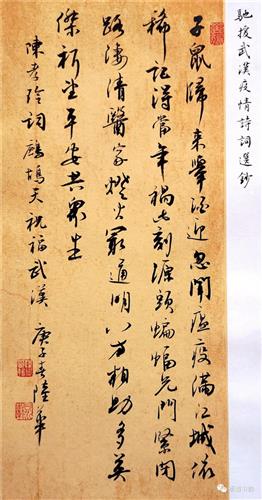 馳援武漢疫情詩詞選鈔
子鼠歸來舉酒迎忽聞瘟疫滿江城依
稀記得當年禍刻源頭蝙蝠兄門緊閉
路淒清醫家燈火通明八方相助多英
傑祈望平安共眾生
陳孝玲詞鷓鴣天祝福武漢 庚子春陸華